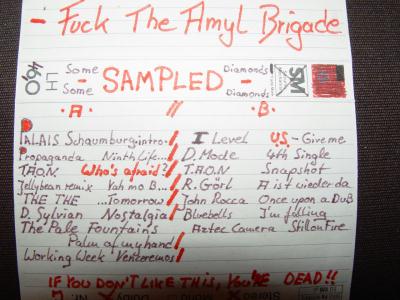 - Fuck The Amyl Brigade
460
LH
Some
- Some
SAMPLED
Diamonds
- Diamonds
SM
- A - // - B -
PALAIS Schaumburg intro.
Propaganda Ninth Life...
T.A.O.N. Who's afraid?
Jellybean remix Yah mo B...
THE THE ...Tomorrow
D. Sylvian Nostalgia
The Pale Fountain's
Palm of my hand
Working Week Venceremos
I Level U.S. - Give me
D. Mode 4th Single
T.A.O.N Snapshot
R. Görl A ist wieder da
John Rocca Once upon a DuB
Bluebells I'm falling
Aztec Camera Still on Fire
IF YOU DON'T LIKE THIS, YOU'RE DEAD!!